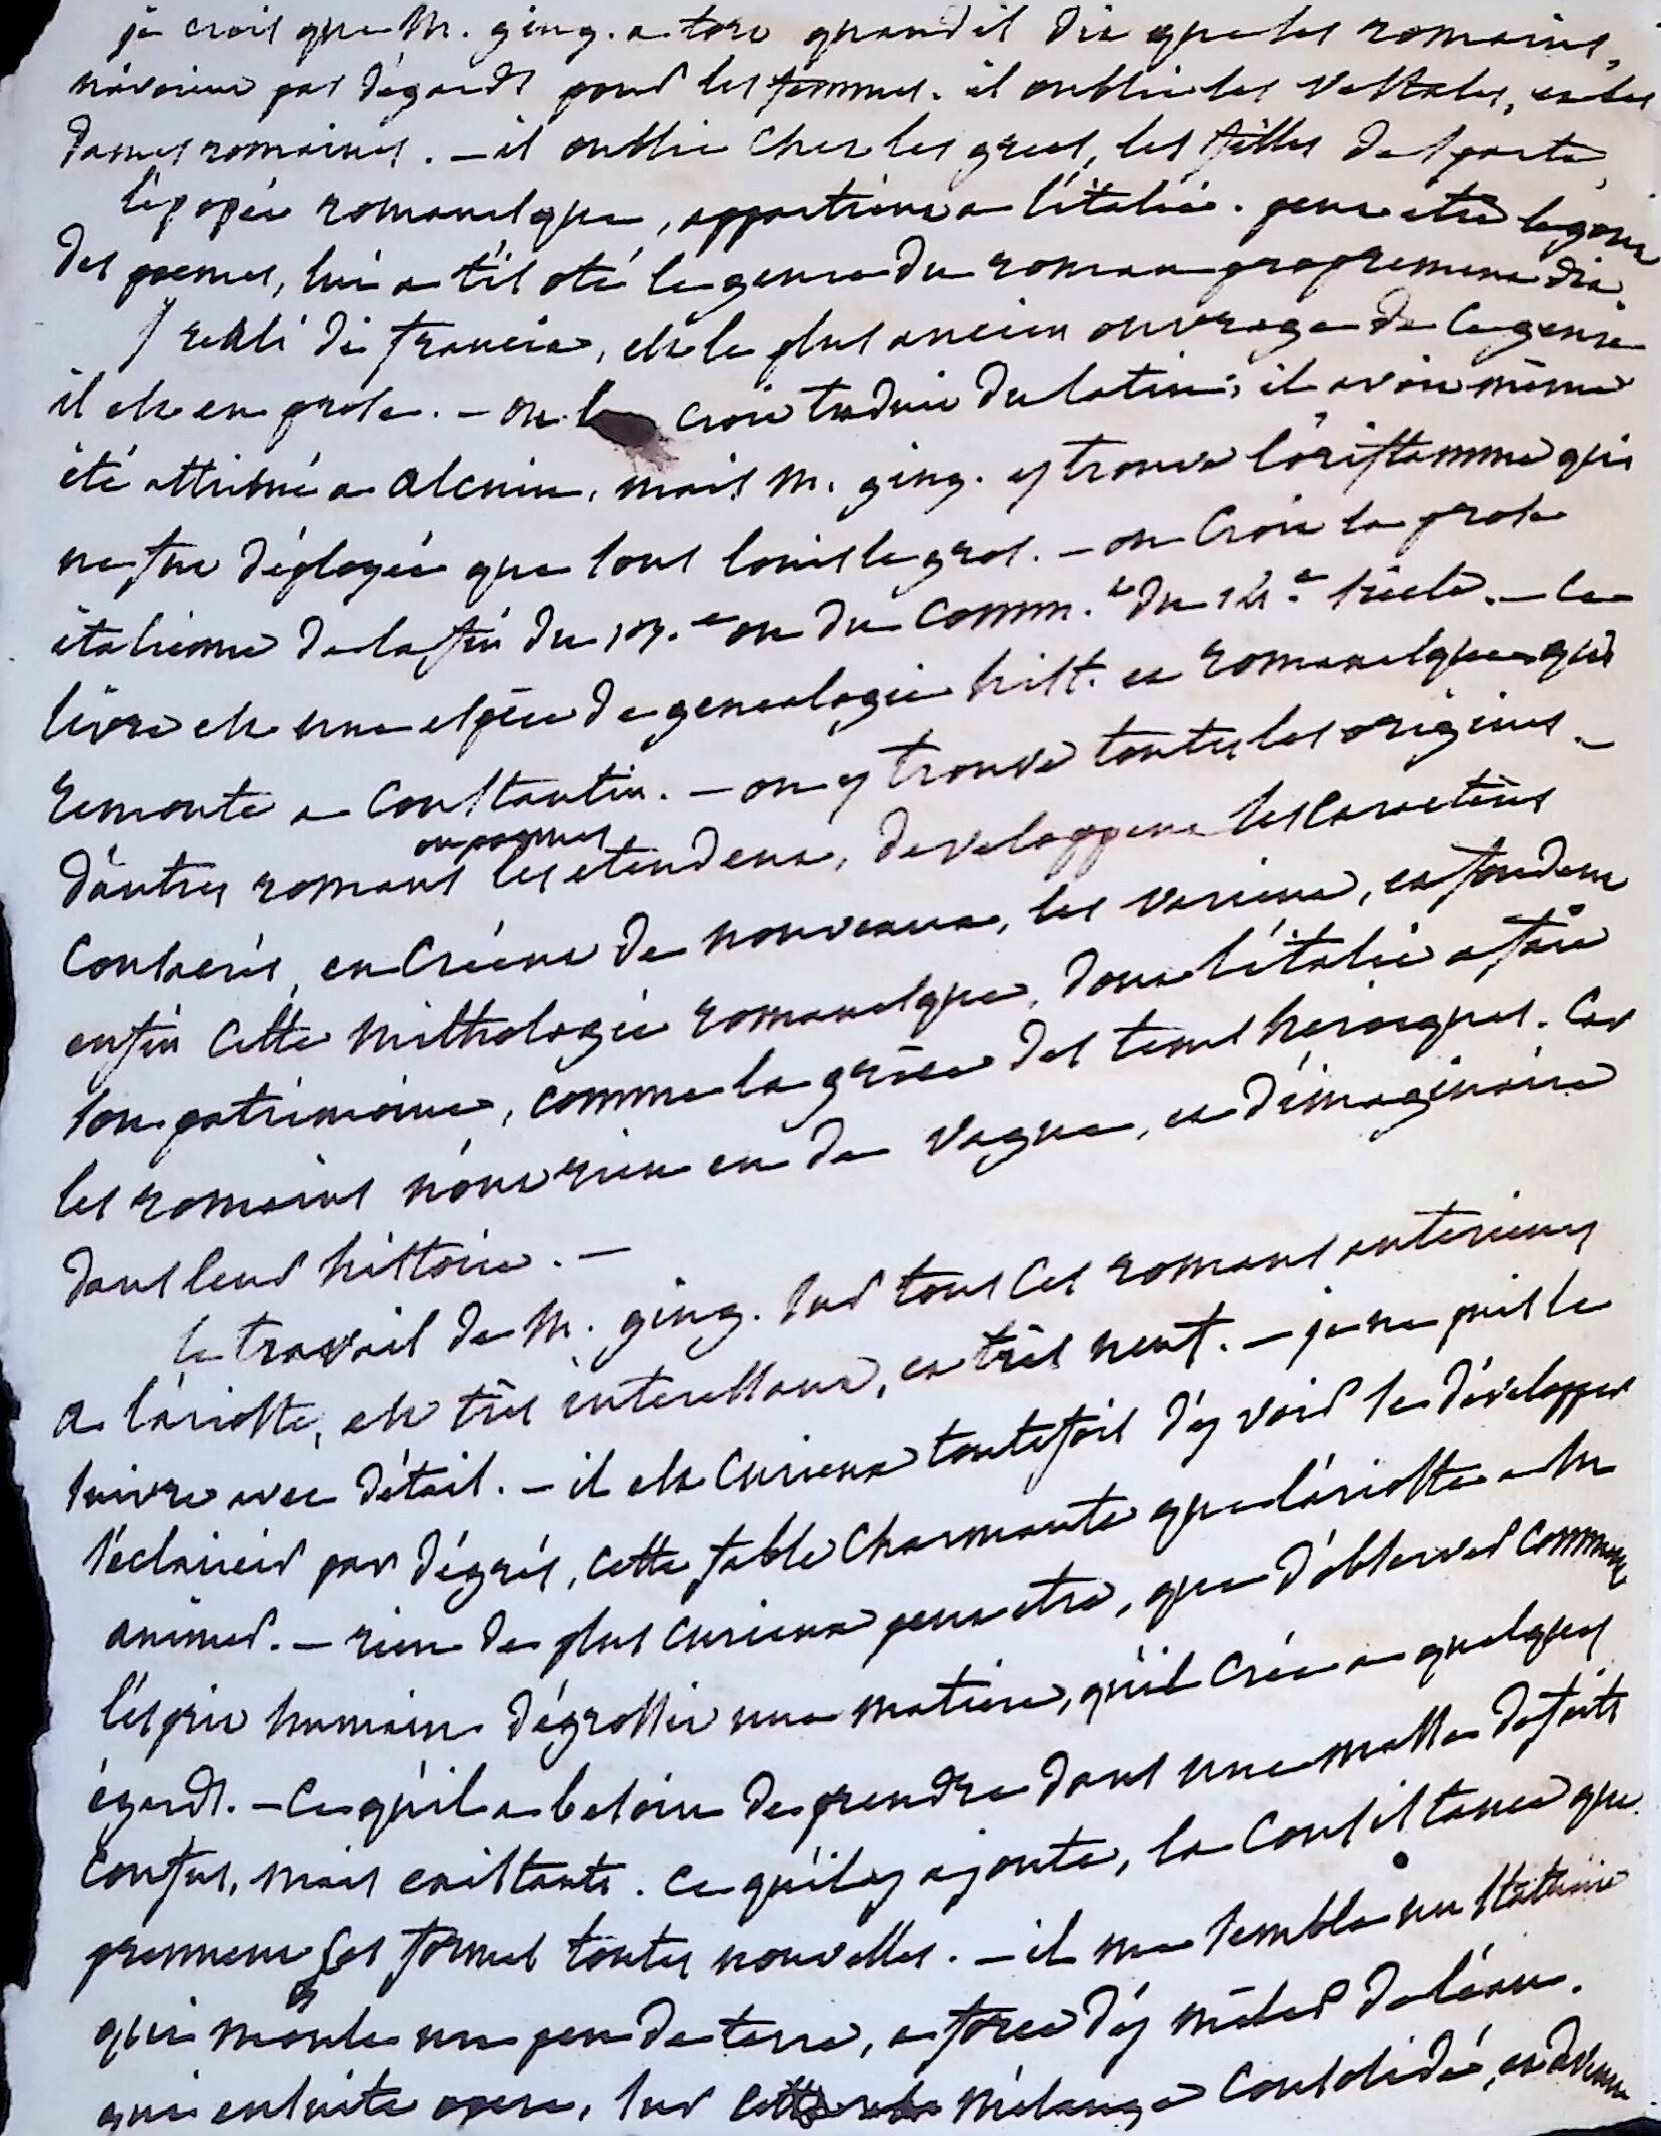 je crois que M. ging. a tort quand il dit que les romains,
n'avoient pas d'égards pour les femmes. il oublie les vestales, et les
dames romaines. – il oublie chez les grecs, les filles de sparte,
l'épopée romanesque, appartient a l'italie. peut etre le gout
des poemes, lui a t'il oté le genre du roman proprement dit.
I reali di francia, est le plus ancien ouvrage de ce genre
il est en prose. – on le croit traduit du latin; il avoit même
été attribué a alcuin, mais M. ging. y trouve l'oriflamme qui
ne fut déployée que sous louis le gros. – on croit la prose
italienne de la fin du 13.e ou du comm.t du 14.e siècle. – ce
livre est une espèce de genealogie hist. et romanesque qui
remonte a Constantin. – on y trouve toutes les origines –
d'autres romans ou poemes les etendent, developpent les caractères
consacrés, en créent de nouveaux, les varient, et fondent
enfin cette mithologie romanesque, dont l'italie a fait
son patrimoine, comme la grèce des tems heroiques. car
les romains n'ont rien eu de vague, et d'imaginaire
dans leur histoire. –
le travail de M. ging. sur tous ces romans anterieurs
a l'arioste, est très interessant, et très neuf. – je ne puis le
suivre avec détail. – il est curieux toutefois d'y voir se développer
s'éclaircir par dégrés, cette fable charmante que l'arioste a su
animer. – rien de plus curieux peut etre, que d'observer comment
l'esprit humain dégrossit une matiere, qu'il crée a quelques
égards. – ce qu'il a besoin de prendre dans une masse de faits
confus, mais existants. ce qu'il y ajoute, la consistance que
prennent ses formes toutes nouvelles. – il me semble un statuaire
qui moule un peu de terre, a force d'y mêler de l'eau.
qui ensuite opere, sur cette mélange consolidé, et devenu